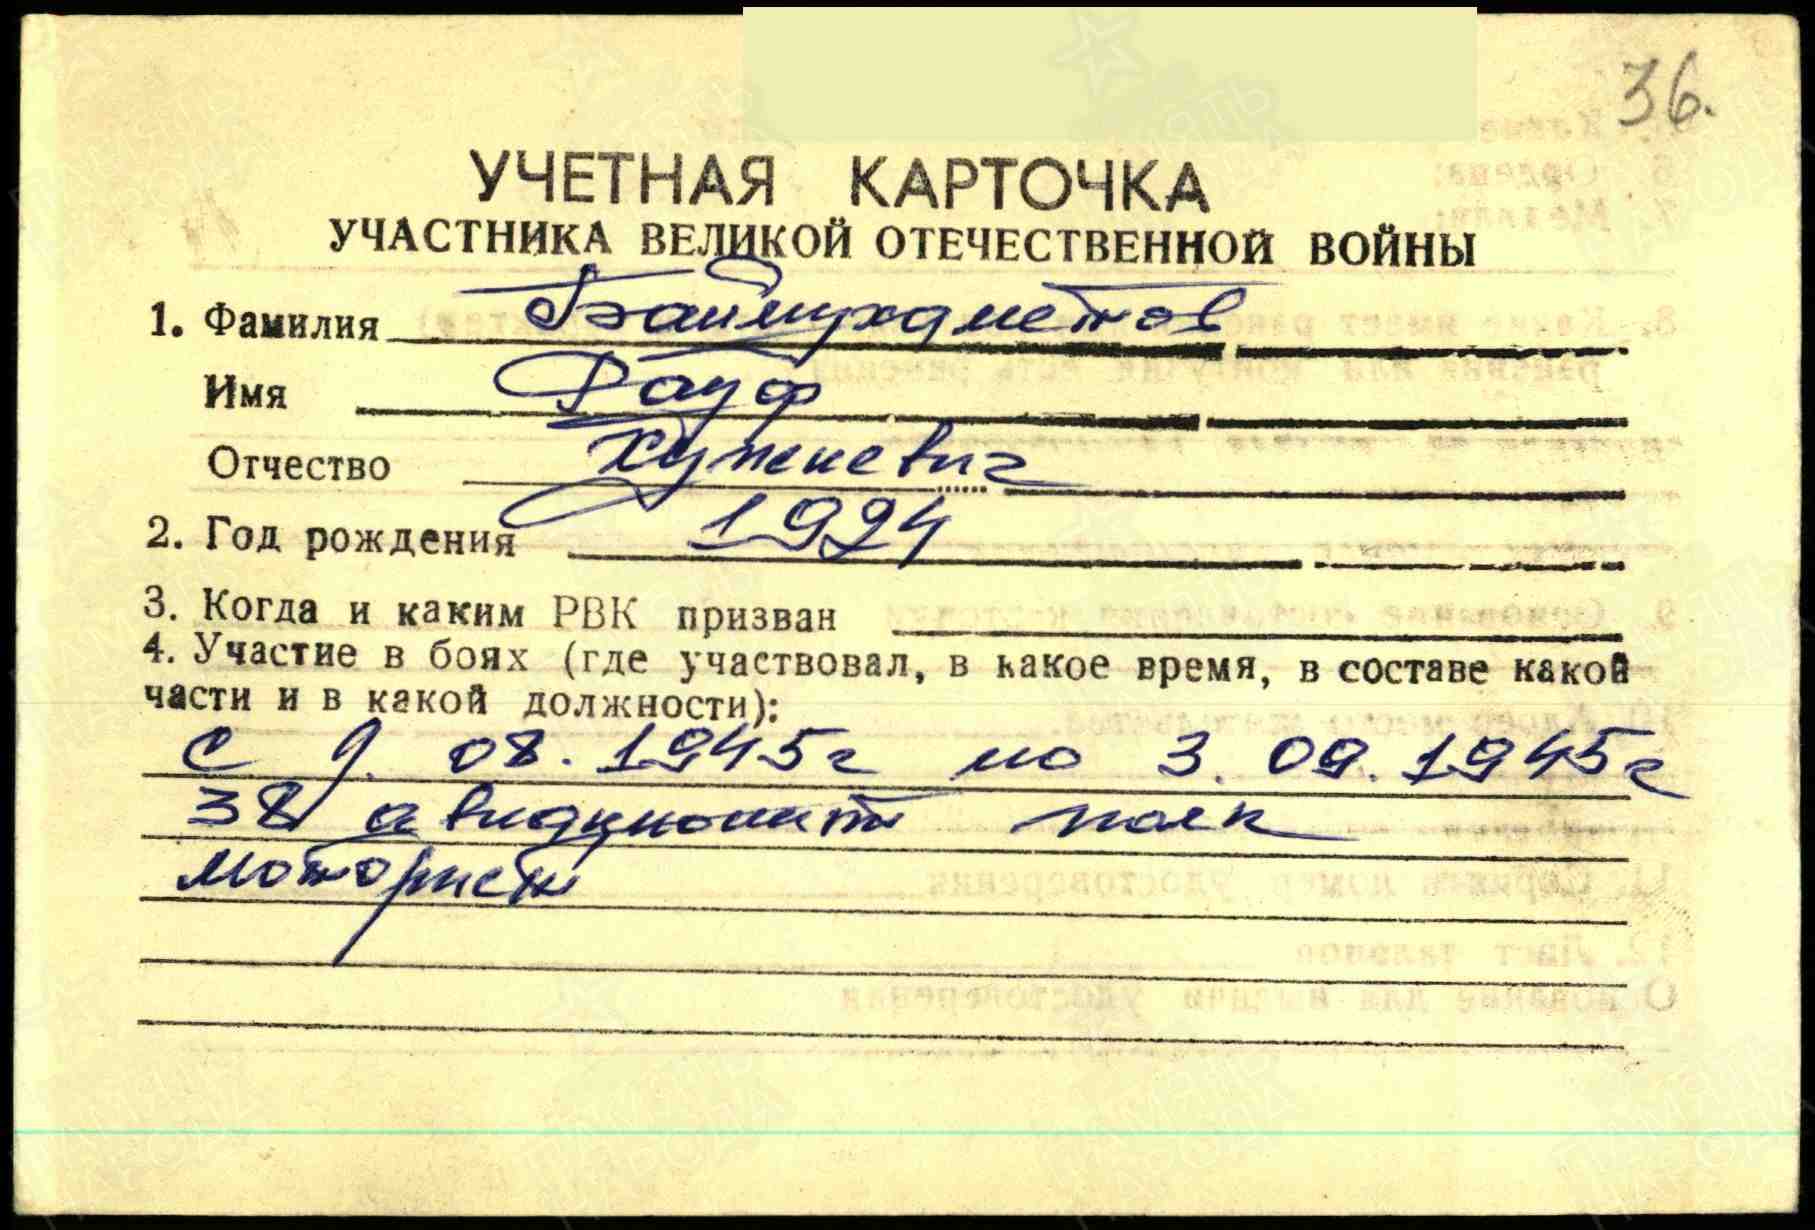 36.
УЧЕТНАЯ КАРТОЧКА
УЧАСТНИКА ВЕЛИКОЙ ОТЕЧЕСТВЕННОЙ ВОЙНЫ
1. Фамилия Баймухаметов
Имя Рауф
Отчество Хужиевич
2. Год рождения 1924
3. Когда и каким РВК призван
4. Участие в боях (где участвовал, в какое время, в составе какой
части и в какой должности):
с 9. 08. 1945г по 3. 09. 1945г
38 авиационный полк
моторист